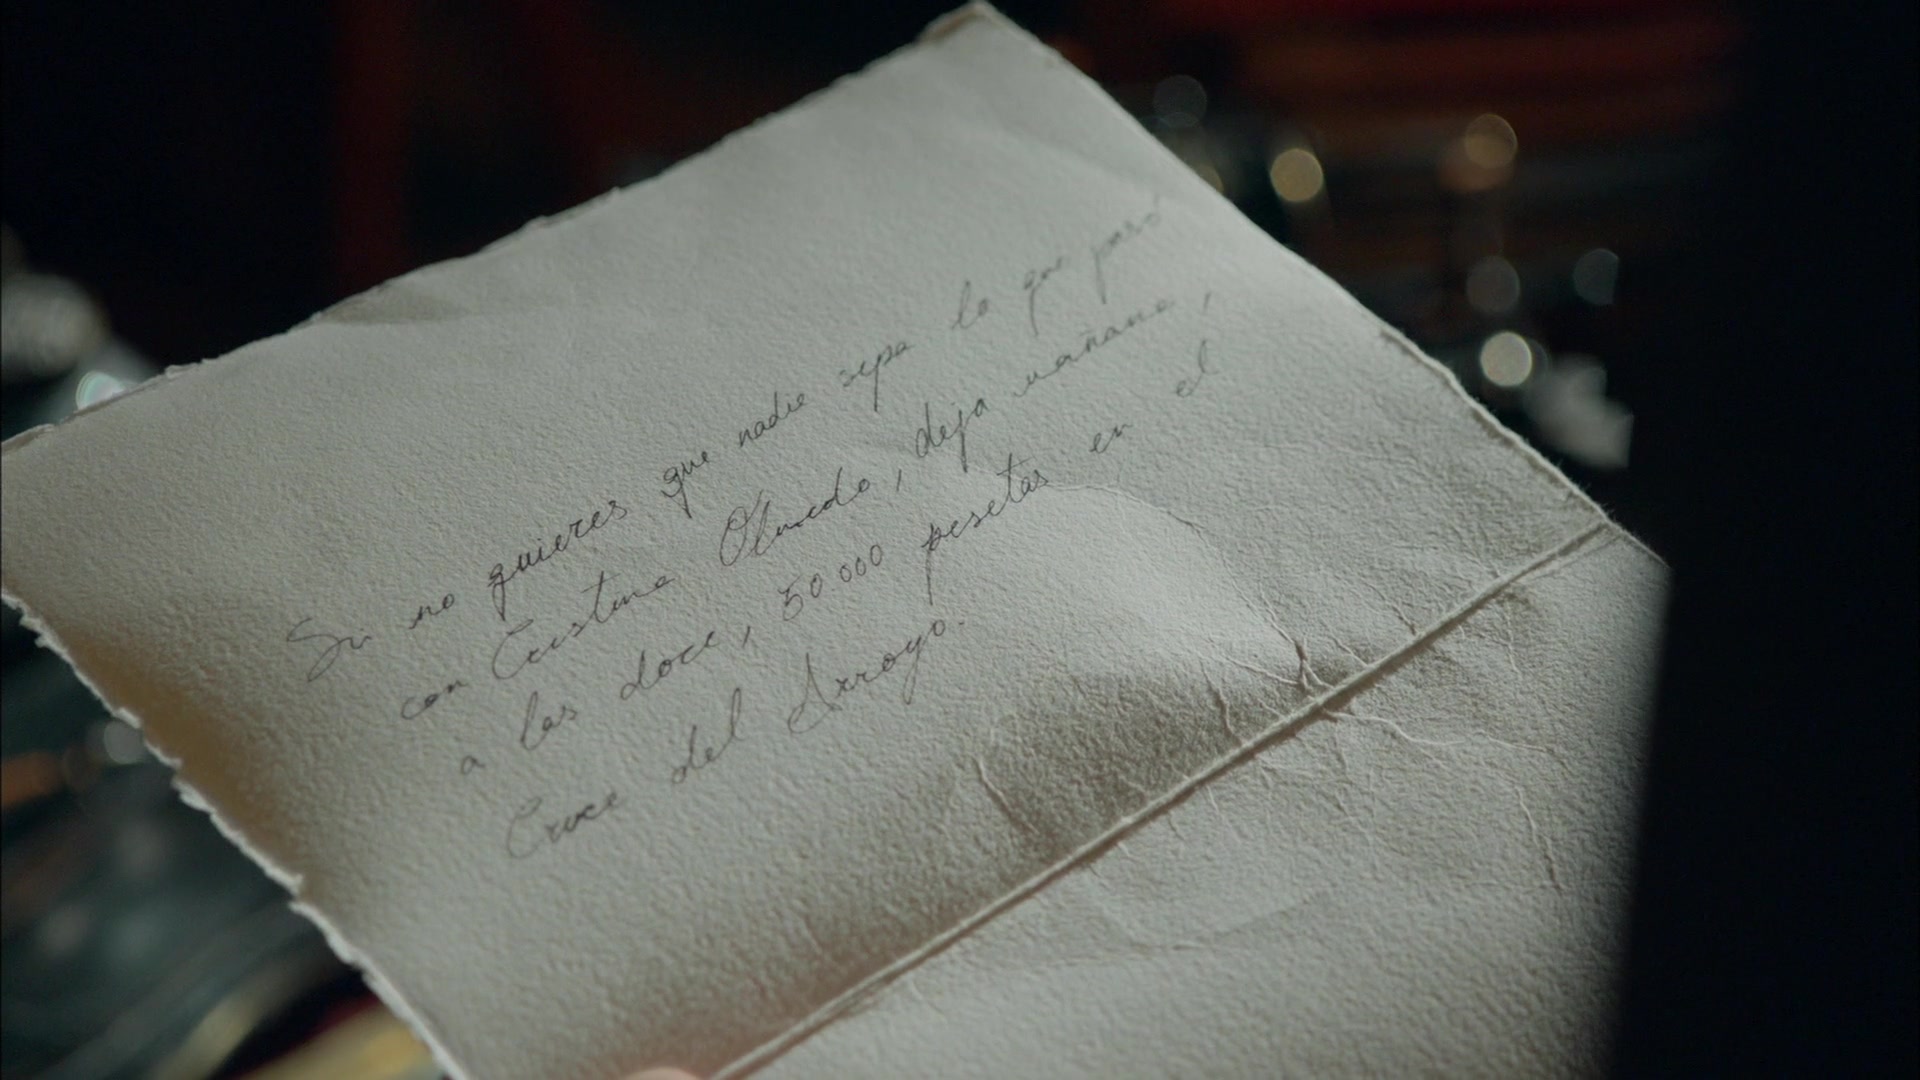 Si no quieres que nadie sepa lo que pasó
con Cristina Olmedo, deja mañana,
a las doce, 50.000 pesetas en el
Cruce del Arroyo.